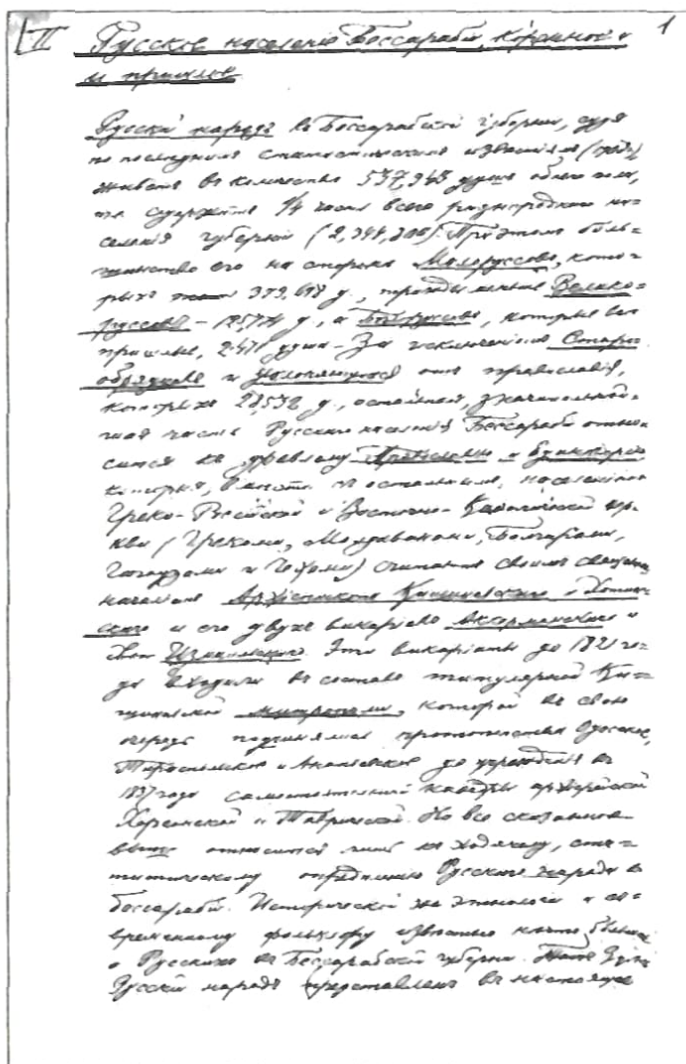 II Русское население Бессарабіи, коренное 1
и пришлое
Русскій народъ въ Бессарабской губерніи, судя
по последнимъ статистическимъ
живетъ въ количестве 537,943 душъ обоего пола,
т.е. 1/4 часть всего разнороднаго на-
селенія губерніи (2,344,300). При этомъ боль-
шинство его на стороне Малоруссовъ, кото-
рыхъ 379,698 д., меньше Велико-
руссовъ – 125774 д., а Белоруссовъ, которые все
пришлые, 2471 душа – За исключеніемъ Старо-
обрядцевъ и уклонившихся отъ православія,
которыхъ 28,532 д., остальная,
часть Русскаго населенія Бессарабіи отно-
сится къ древлему Православію и
которыя, вместе съ остальнымъ населеніемъ
Греко-Россійской и Восточно-Каѳолической цер-
кви (Греками, Молдаванами, Болгарами,
Гагаузами и ) считаетъ своимъ священно-
начальникомъ Архіепископа Кишиневскаго и Хотин-
скаго и его двухъ викаріевъ Аккерманскаго и
Измаильскаго. Эти викаріаты до 1821 го-
да входили въ составъ титулярной Ки-
шиневской митрополіи, которой въ свою
очередь подчинялись протопопства Одесское,
Тираспольское и Ананьевское до учрежденія въ
1837 году самостоятельной каѳедры архіерейской
Херсонской и Таврической. Но все сказанное
выше относится лишь къ ходячему, ста-
тистическому определенію Русскаго народа въ
Бессарабіи. Исторической же этнологіи и со-
временному фольклору известно нечто больше
о Русскихъ въ Бессарабской губерніи.
Русскій народъ представленъ въ настояще